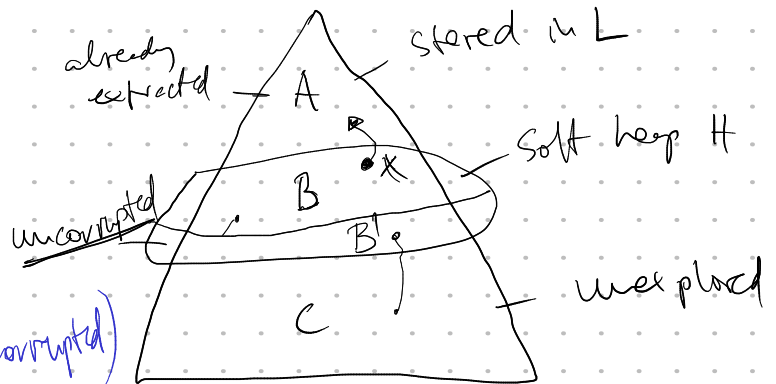 already
extracted
stored in L
A
soft heap H
X
B
uncorrupted
B'
unexplored
C
corrupted)